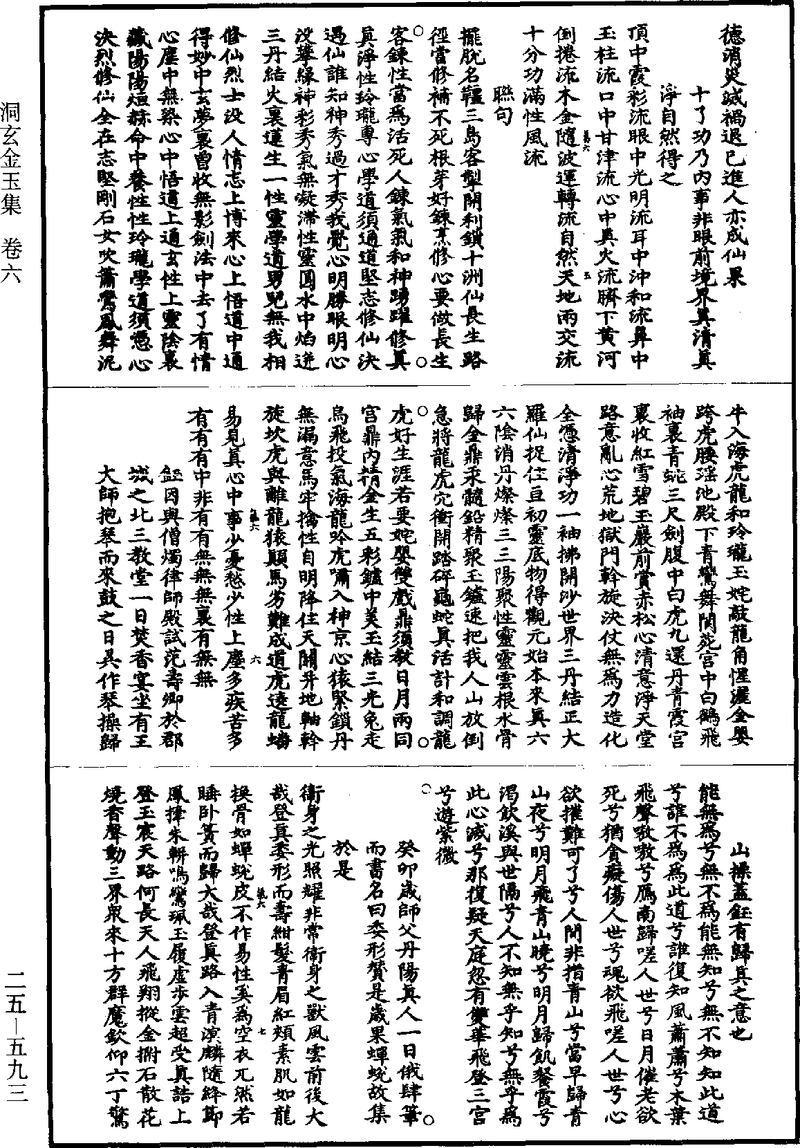 德消災滅禍退已進人亦成仙果
十了功乃内事非眼前境界真清真
淨自然得之
頂中霞彩流眼中光明流耳中沖和流鼻中
玉柱流口中甘津流心中真火流臍下黄河
倒捲流木金隨波運轉流自然天地兩交流
十分功滿性風流
聮句
擺脫名韁三島客掣開利鎖十洲仙長生路
徑當修補不死根芽好鍊烹修心要做長生
客鍊性當為活死人鍊氣氣和神踴躍修真
真淨性玲瓏專心學道須通道堅志修仙決
遇仙誰知神秀過才秀我覺心明勝眼明心
没莘緣神彩秀氣無凝滯性靈圓水中焰迸
三丹結火裏蓮生一性靈學道男兒無我相
修仙烈士没人情志上博來心上悟道中通
得妙中玄夢裏曾收無影劍法中去了有情
心塵中無染心中悟道上通玄性上靈陰裏
藏陽陽短赫命中養性性玲瓏學道須憑心
決烈修仙全在志堅剛石女吹簫鸞鳳舞泥
牛入海虎龍和玲瓏玉姹敲龍角惺灑金嬰
跨虎腰瑶池殿下青鸞舞閬苑宫中白鶴飛
袖裏青蛇三尺劍腹中白虎九還丹青霞宫
裏收紅雪碧玉巖前賞赤松心清意淨天堂
路意亂心荒地獄門斡旋決仗無為力造化
全憑清淨功一袖拂開沙世界三丹結正大
羅仙捉住亘初靈底物得觀元始本來真六
六陰消丹燦燦三三陽聚性靈靈雲根水骨
歸金鼎汞髓鉛精聚玉鑪速把我人山放倒
急將龍虎穴衝開踏碎龜蛇真活計和調龍
虎好生涯若要姹嬰雙戲鼎須教日月兩同
宫鼎内精金生五彩鑪中美玉結三光兔走
烏飛投氣海龍吟虎嘯入神京心猿緊鎖丹
無漏意馬牢擒性自明降住天關升地軸斡
旋坎虎與離龍猿顛馬劣難成道虎遶龍蟠
易見真心中事少憂愁少性上塵多疾苦多
有有有中非有有無無無裏有無無
鈺因與僧燭律師殿試范壽卿於郡
城之北三教堂一日焚香宴坐有王
大師抱琴而來鼓之日具作琴操歸
山操蓋鈺有歸真之意也
能無為兮無不為能無知兮無不知知此道
兮誰不為為此道兮誰復知風蕭蕭兮木葉
飛聲嗷嗷兮鴈南歸嗟人世兮日月催老欲
死兮猶貪癡傷人世兮魂欲飛嗟人世兮心
欲摧難可了兮人間非指青山兮當早歸青
山夜兮明月飛青山曉兮明月歸飢餐霞兮
渴飲溪與世隔兮人不知無乎知兮無乎為
此心滅兮那復疑天庭忽有雙華飛登三宫
兮遊紫微
癸卯歳師父丹陽真人一日俄肆筆
而書名曰委形贊是歳果蟬蛻故集
於是
衛身之光照耀非常衛身之獸風雲前後大
哉登真委形而壽紺髮青眉紅頰素肌如龍
换骨如蟬蛻皮不作易性奚為空衣兀然若
睡卧簀而歸大哉登真路入青溟麟隨絳節
鳳捧朱軿鳴鸞珮玉履虚步雲超受真誥上
登玉宸天路何長天人飛翔摐金拊石散花
燒香聲動三界衆來十方群魔欽仰六丁驚
洞玄金玉集　卷六
二五—五九三